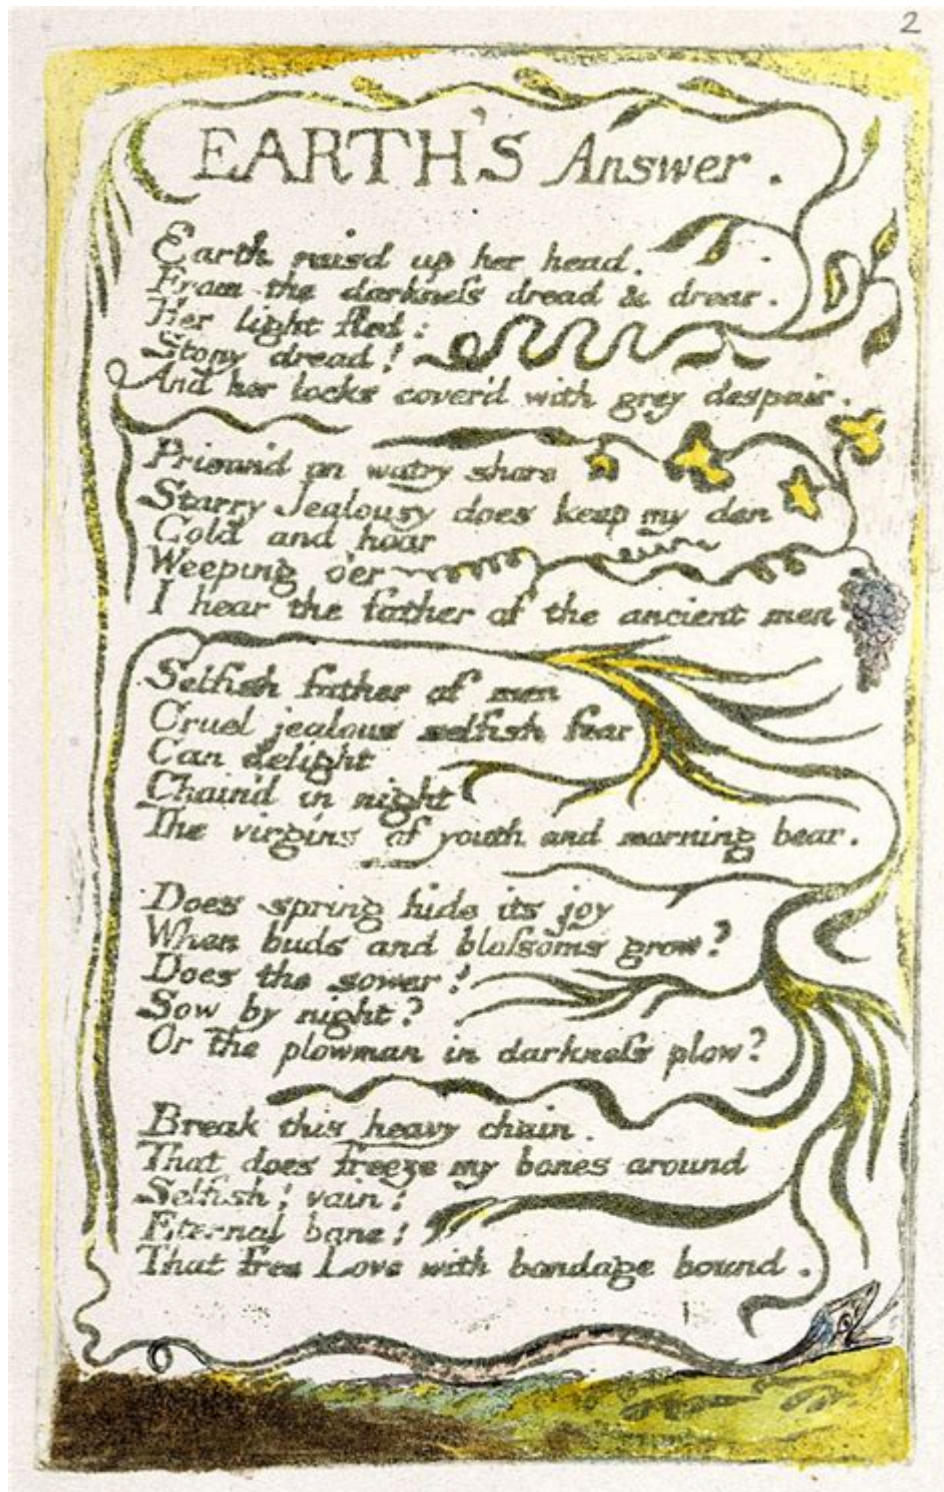 2
EARTH'S Answer.
Earth rais'd up her head.
From the darkneſs dread & drear.
Her light fled:
Stony dread!
And her locks cover'd with grey despair.
Prison'd on watry shore
Starry Jealousy does keep my den
Cold and hoar
Weeping o'er
I hear the father of the ancient men
Selfish father of men
Cruel jealous selfish fear
Can delight
Chain'd in night
The virgins of youth and morning bear.
Does spring hide its joy
When buds and bloſsoms grow?
Does the sower!
Sow by night?
Or the plowman in darkneſs plow?
Break this heavy chain.
That does freeze my bones around
Selfish! vain!
Eternal bane!
That free Love with bondage bound.